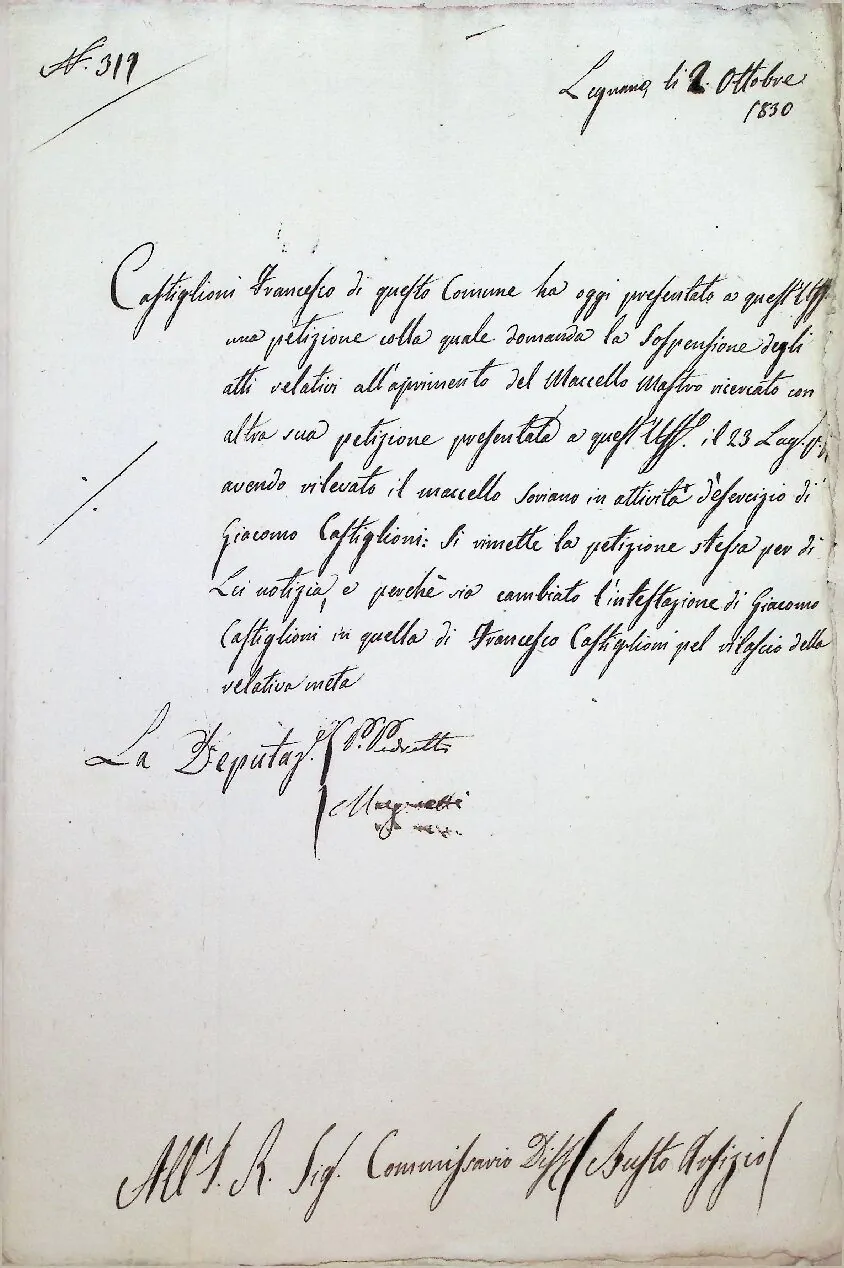 N. 319
Legnano, li 2. Ottobre
1830
Castiglioni Francesco di questo Comune ha oggi presentato a quest'Uff.
una petizione colla quale domanda la Sospensione degli
atti relativi all'aprimento del Maccello Mastro ricercato con
altra sua petizione presentata a quest'Uff. il 23 Lug.
avendo rilevato il maccello Soriano in attività d'esercizio di
Giacomo Castiglioni: Si rimette la petizione stessa per di
Lei notizia, e perchè sia cambiato l'intestazione di Giacomo
Castiglioni in quella di Francesco Castiglioni pel rilascio della
relativa meta
La Deputaz.
All'I. R. Sig. Commissario Dist. Busto Arsizio